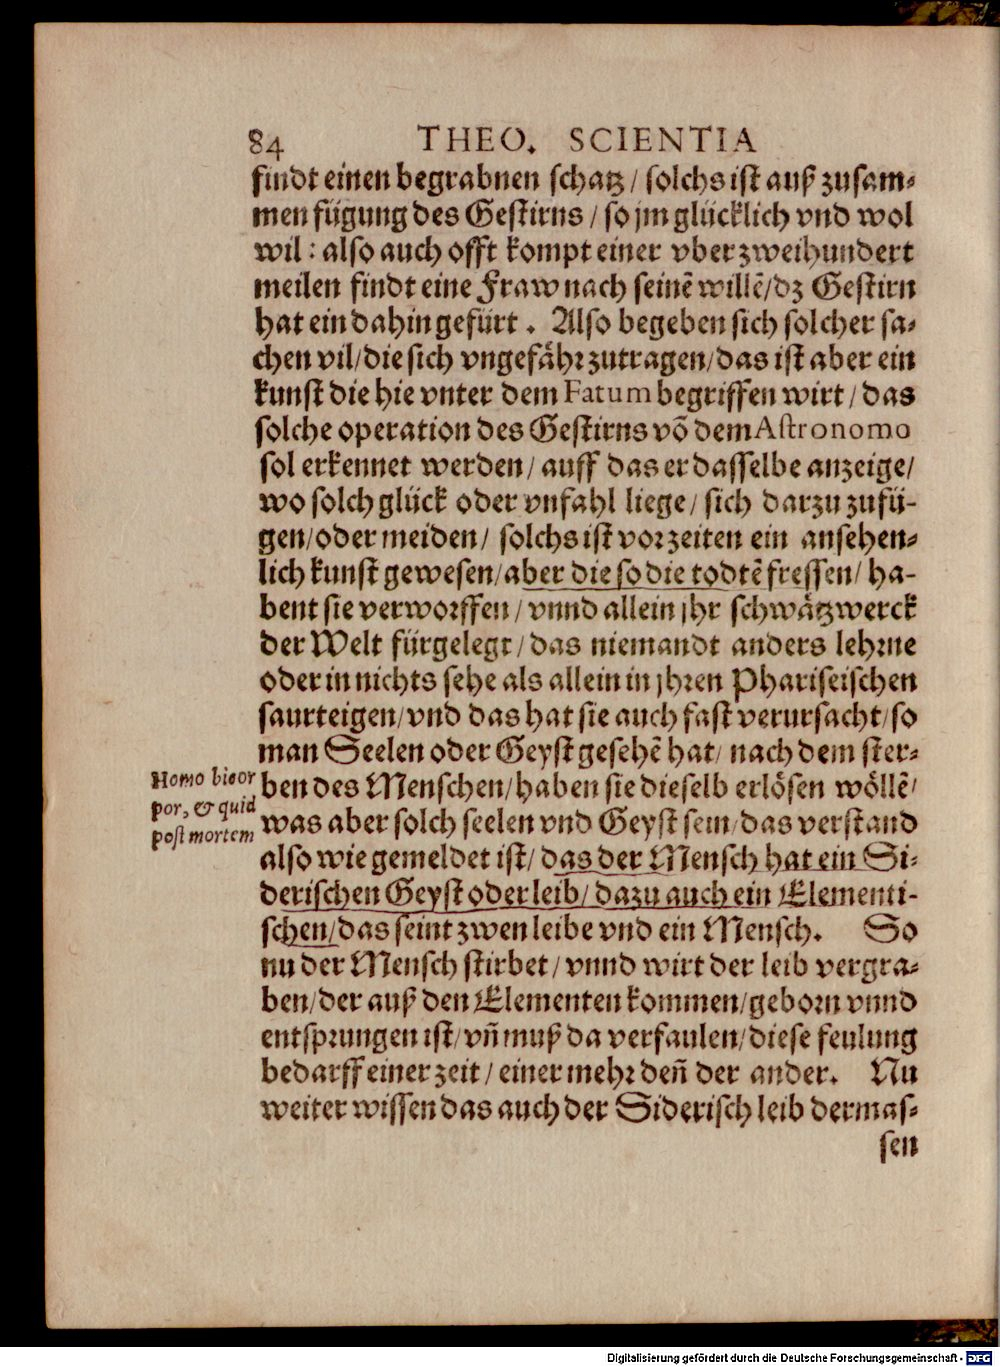 84 THEO. SCIENTIA
findt einen begrabnen schatz / solchs ist auß zusam-
men fügung des Gestirns / so jm glücklich vnd wol
wil : also auch offt kompt einer vber zweihundert
meilen findt eine Fraw nach seinē willē/dz Gestirn
hat ein dahin gefürt . Also begeben sich solcher sa-
chen vil/die sich vngefåhr zutragen/das ist aber ein
kunst die hie vnter dem Fatum begriffen wirt / das
solche operation des Gestirns võ dem Astronomo
sol erkennet werden / auff das er dasselbe anzeige/
wo solch glück oder vnfahl liege / sich darzu zufü-
gen/oder meiden / solchs ist vorzeiten ein ansehen-
lich kunst gewesen/aber die so die todtē fressen/ ha-
bent sie verworffen / vnnd allein jhr schwåtzwerck
der Welt fürgelegt / das niemandt anders lehrne
oder in nichts sehe als allein in jhren Phariseischen
saurteigen/vnd das hat sie auch fast verursacht/so
man Seelen oder Geyst gesehē hat/ nach dem ster-
Homo bicor
por, & quid
post mortem
ben des Menschen/haben sie dieselb erlösen wöllē/
was aber solch seelen vnd Geyst sein/das verstand
also wie gemeldet ist/ das der Mensch hat ein Si-
derischen Geyst oder leib/ dazu auch ein Elementi-
schen/das seint zwen leibe vnd ein Mensch. So
nu der Mensch stirbet / vnnd wirt der leib vergra-
ben/der auß den Elementen kommen/geborn vnnd
entsprungen ist/vñ muß da verfaulen/diese feulung
bedarff einer zeit / einer mehr deñ der ander. Nu
weiter wissen das auch der Siderisch leib dermas-
sen
Digitalisierung gefördert durch die Deutsche Forschungsgemeinschaft - DFG